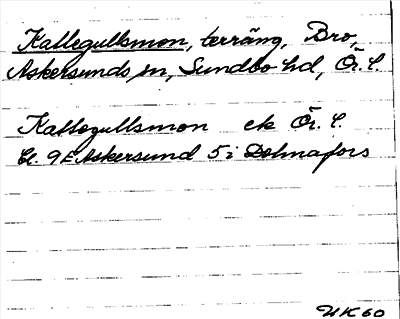 Kallegullsmon, terräng, Bro,
Askersunds sn, Sundbo hd, Ör. l.
Kallegullsmon ek Ör. l.
Bl. 9E Askersund 5i Dohnafors
UK 60